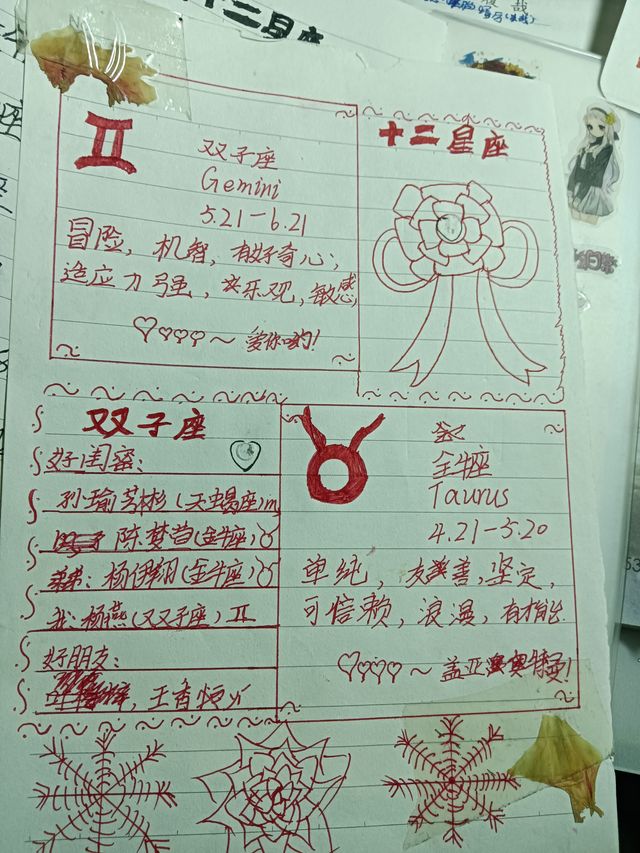 十二星座
双子座
Gemini
5.21-6.21
冒险，机智，有好奇心，
适应力强，乐观，敏感
爱你哟！
十二星座
双子座
好闺蜜：
孙瑜芳彬（天蝎座）♏
陈梦茵（金牛座）♉
弟弟：杨伊翔（金牛座）♉
我：杨燕（双子座）♊
好朋友：
王香
金牛座
Taurus
4.21-5.20
单纯，友善，坚定，
可信赖，浪漫，有才能
盖亚奥特曼！